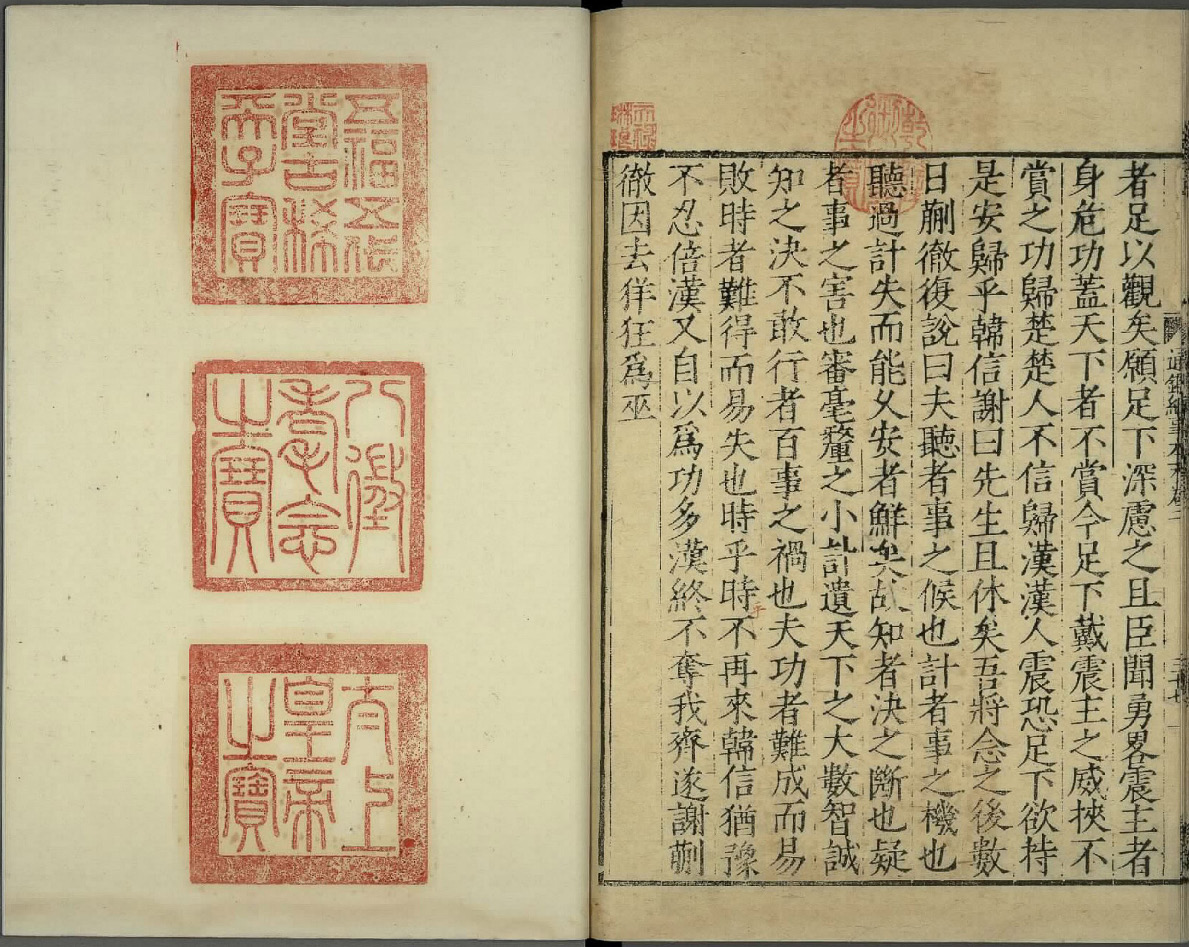 者足以觀矣願足下深慮之且臣聞勇畧震主者
身危功蓋天下者不賞今足下戴震主之威挾不
賞之功歸楚楚人不信歸漢漢人震恐足下欲持
是安歸乎韓信謝曰先生且休矣吾將念之後數
日蒯徹復說曰夫聽者事之候也計者事之機也
聽過計失而能久安者鮮矣故知者決之斷也疑
者事之害也審毫釐之小計遺天下之大數智誠
知之決不敢行者百事之禍也夫功者難成而易
敗時者難得而易失也時乎時不再來韓信猶豫
不忍倍漢又自以爲功多漢終不奪我齊遂謝蒯
徹因去佯狂爲巫
乎
通鑑紀事本末卷二
天祿琳琅
乾隆御覽之寶
五福五代堂古稀天子寶
八徵耄念之寶
太上皇帝之寶